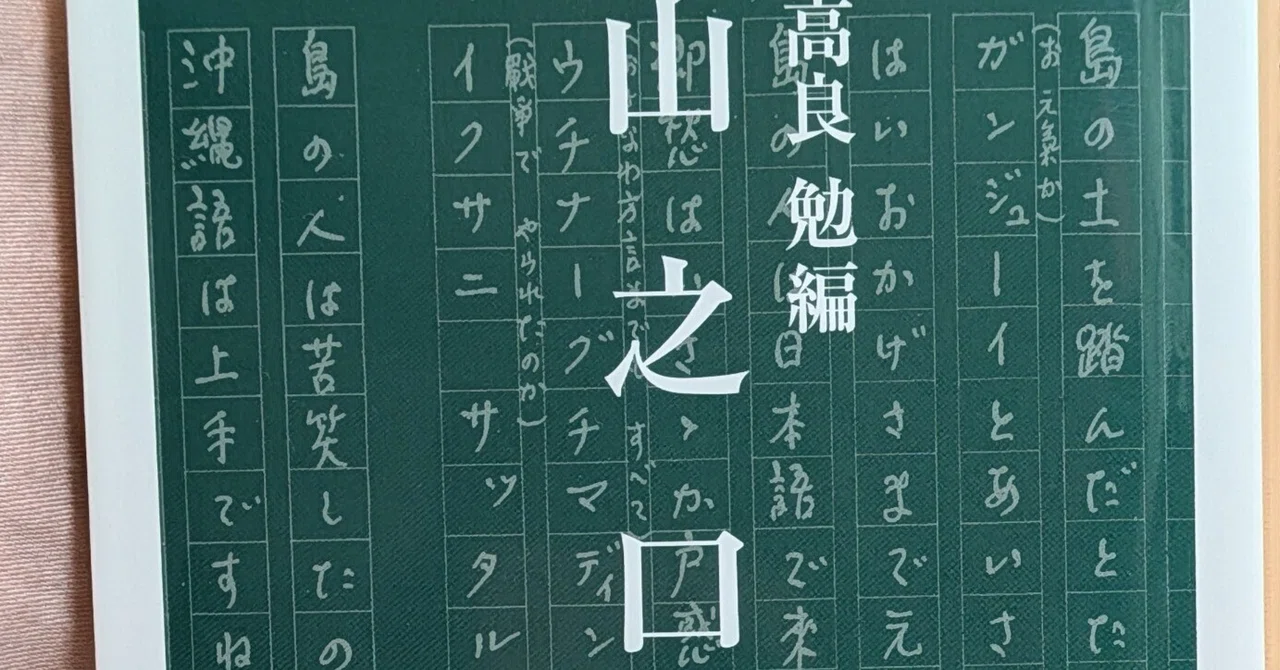 高良 勉編
山之口
島の土を踏んだとた
(お元氣か)
ガンジューイとあいさ
はいおかげさまで元
島の人は日本語で来
郷愁はいさゝか戸惑
なわ方言まで すべて)
ウチナーグチマディン
(戰爭で やられたのか)
イクサニ サッタル
島の人は苦笑したの
沖縄語は上手ですね